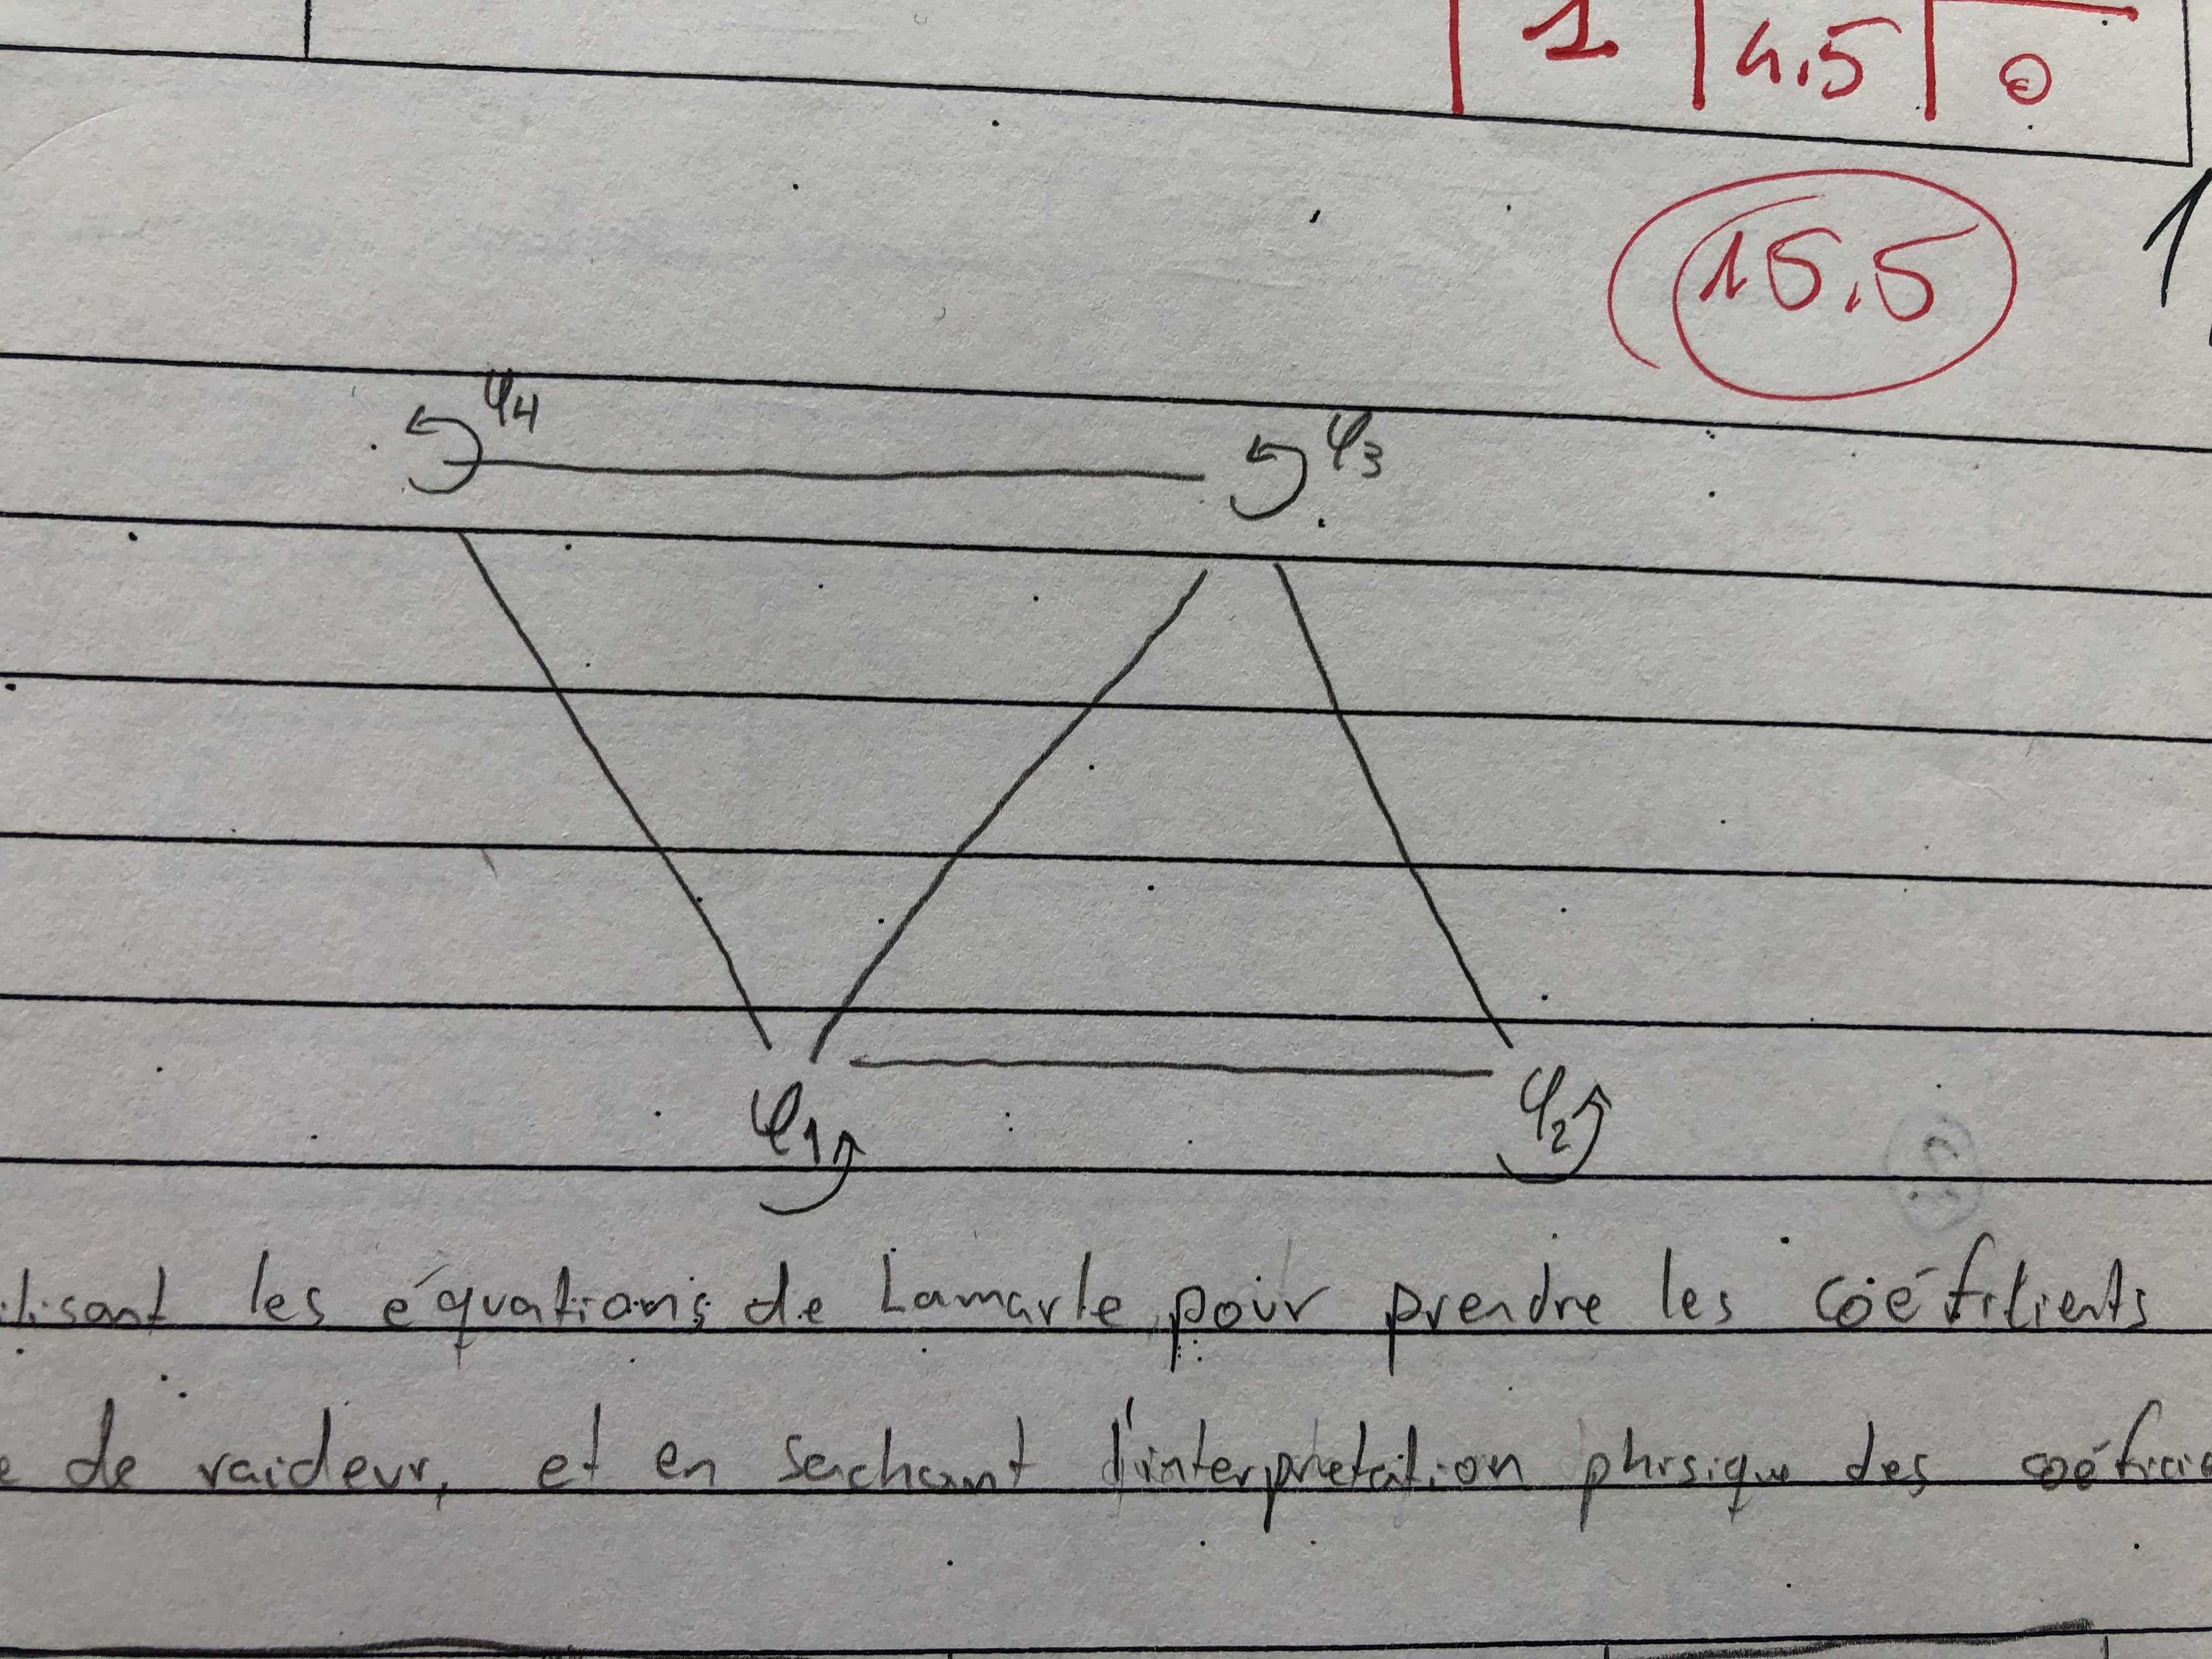 1 | 4,5 | 0
15,5
φ4
φ3
φ1
φ2
lisant les équations de Lamarle, poir prendre les coéficients
e de raideur, et en sachant l'interprétation phrsique des coéfici